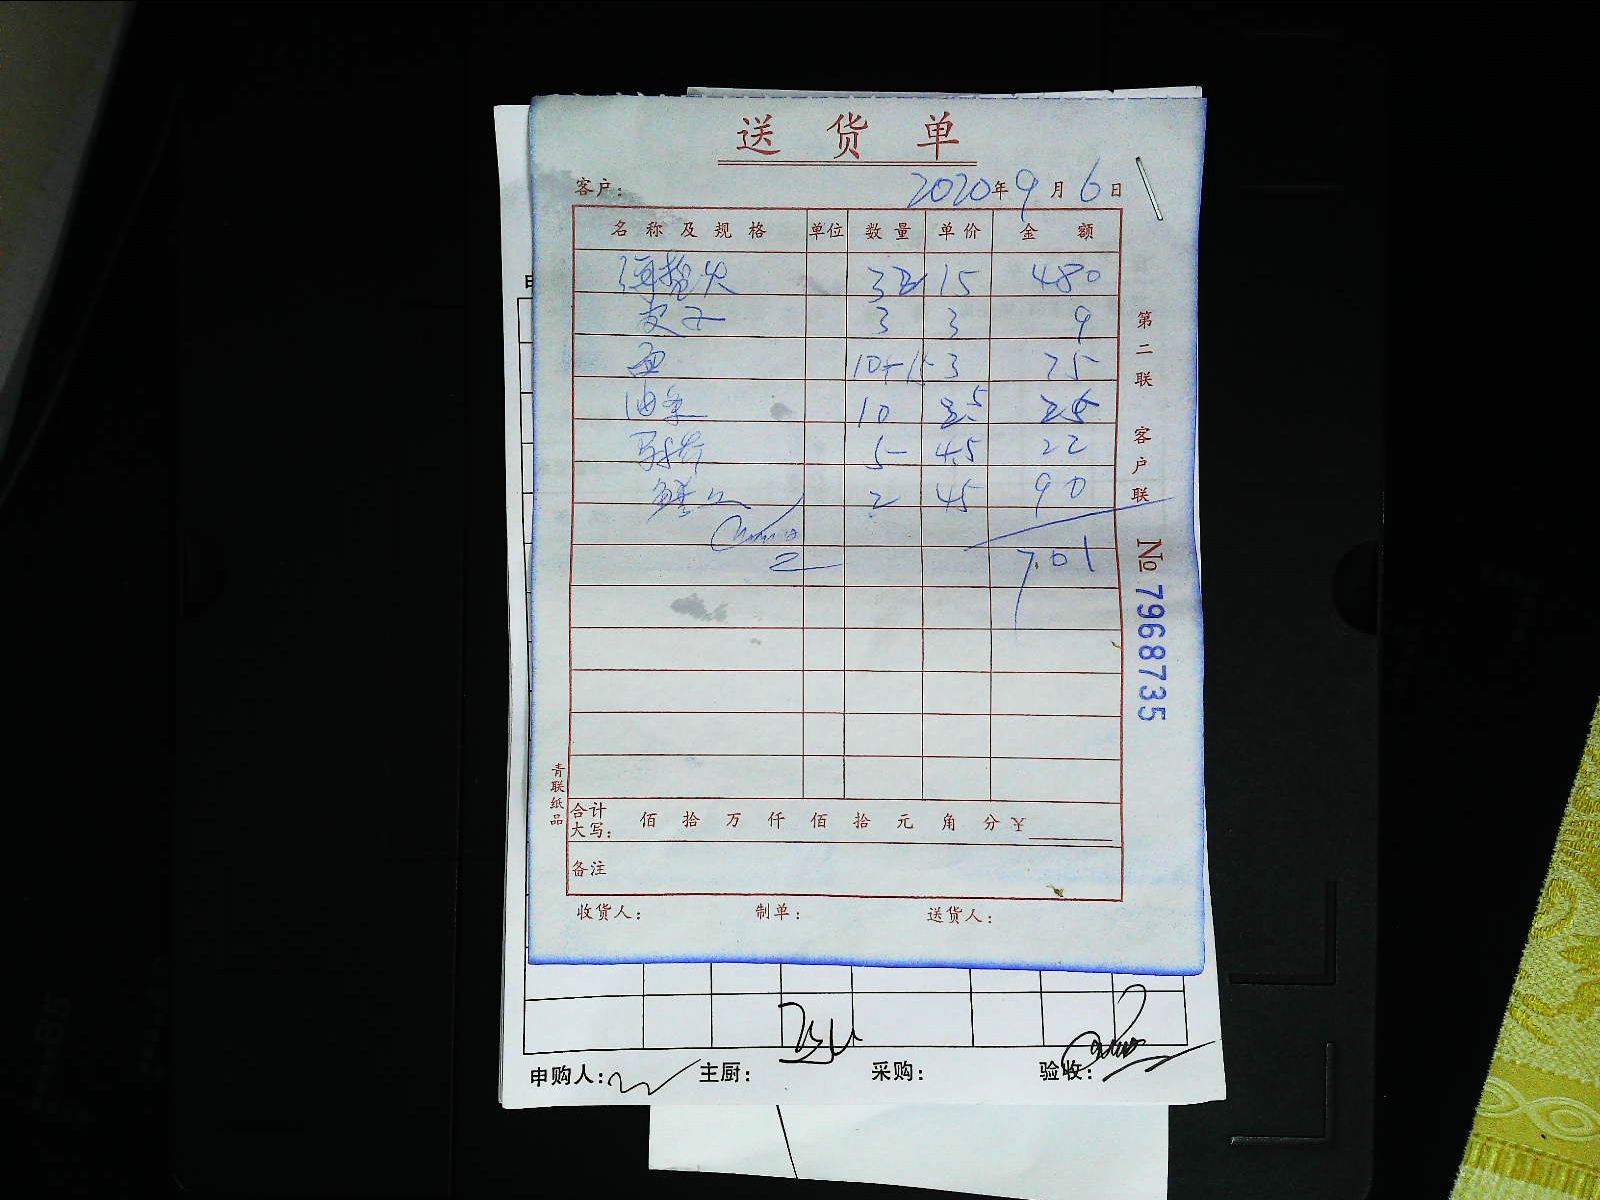 送货单
客户: 2020年9月6日
名称及规格 单位 数量 单价 金额
32 15 480
皮子 3 3 9
面 10+15 3 75
油条 10 2.5 25
5 4.5 22
2 45 90
701
合计大写: 佰 拾 万 仟 佰 拾 元 角 分 ¥
备注
收货人: 制单: 送货人:
第二联 客户联
№ 7968735
青联纸品
申购人: 主厨: 采购: 验收: